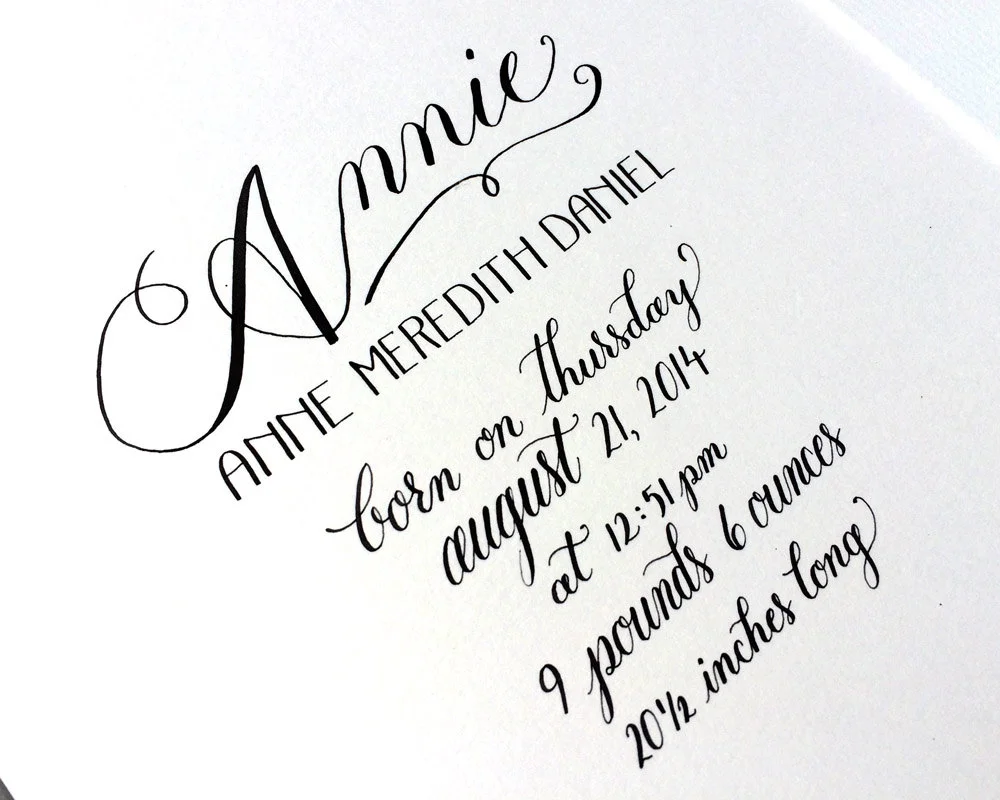 Annie
ANNE MEREDITH DANIEL
born on thursday
august 21, 2014
at 12:51 pm
9 pounds 6 ounces
20 1/2 inches long